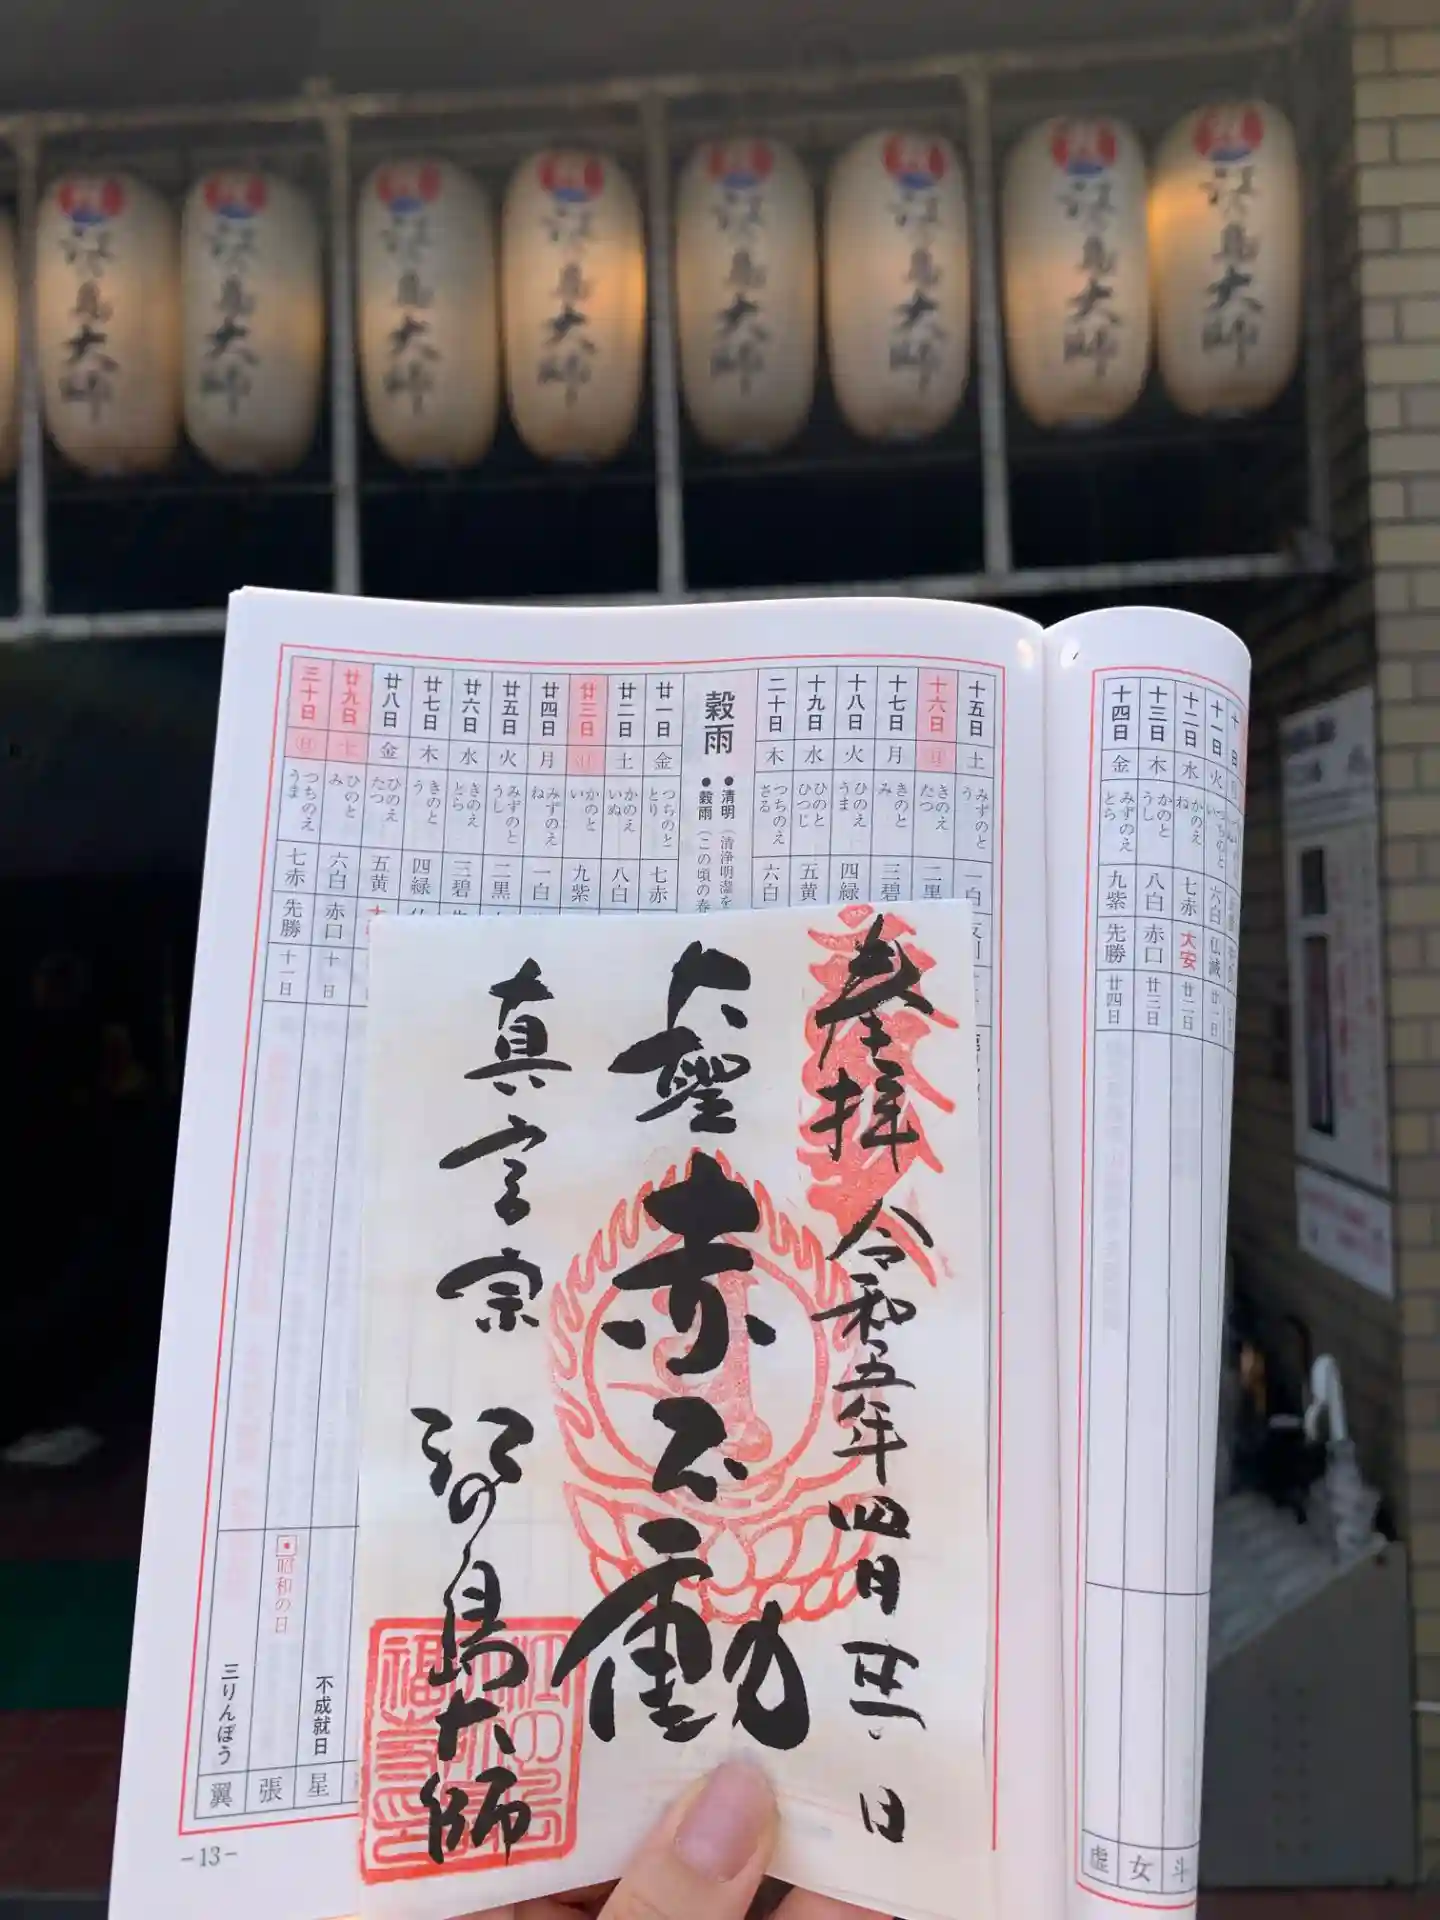 江の島大師
江の島大師
江の島大師
江の島大師
江の島大師
江の島大師
江の島大師
江の島大師
十日
十一日 火 つちのとい 六白 仏滅 廿一日
十二日 水 かのえね 七赤 大安 廿二日 斗
十三日 木 かのとうし 八白 赤口 廿三日 女
十四日 金 みずのえとら 九紫 先勝 廿四日 虚
十五日 土 みずのとう 一白
十六日 日 きのえたつ 二黒
十七日 月 きのとみ 三碧
十八日 火 ひのえうま 四緑
十九日 水 ひのとひつじ 五黄
二十日 木 つちのえさる 六白
穀雨
●清明（清浄明潔を
●穀雨（この頃の春
廿一日 金 つちのととり 七赤
廿二日 土 かのえいぬ 八白
廿三日 日 かのとい 九紫
廿四日 月 みずのえね 一白
廿五日 火 みずのとうし 二黒
廿六日 水 きのえとら 三碧
廿七日 木 きのとう 四緑
廿八日 金 ひのえたつ 五黄
廿九日 土 ひのとみ 六白 赤口 十日 昭和の日 張
三十日 日 つちのえうま 七赤 先勝 十一日 三りんぼう 翼
不成就日 星
-13-
奉拝 令和五年四月 日
大聖 赤不動
真言宗 江の島大師